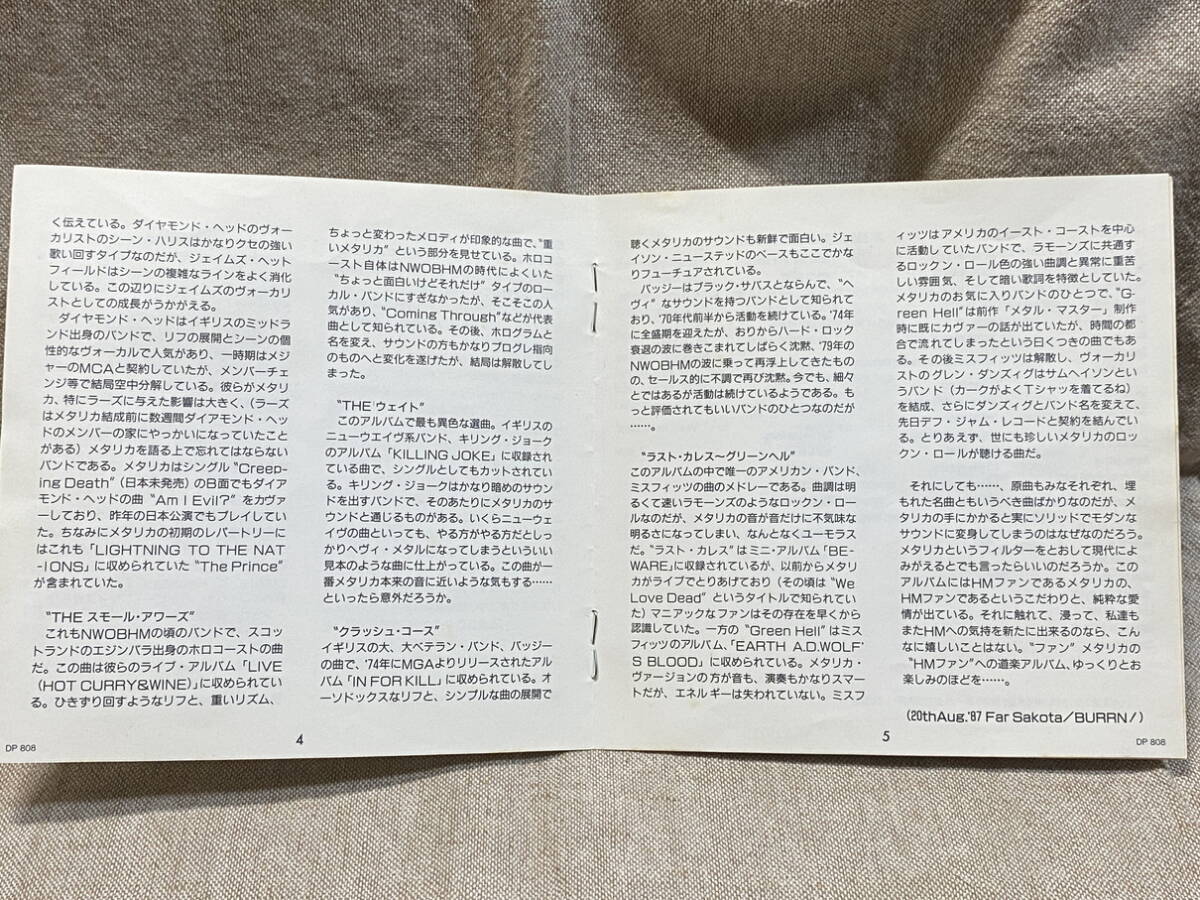 く伝えている。ダイヤモンド・ヘッドのヴォー
カリストのシーン・ハリスはかなりクセの強い
歌い回すタイプなのだが、ジェイムズ・ヘット
フィールドはシーンの複雑なラインをよく消化
している。この辺りにジェイムズのヴォーカリ
ストとしての成長がうかがえる。
ダイヤモンド・ヘッドはイギリスのミッドラ
ンド出身のバンドで、リフの展開とシーンの個
性的なヴォーカルで人気があり、一時期はメジ
ャーのMCAと契約していたが、メンバーチェ
ンジ等で結局空中分解している。彼らがメタリ
カ、特にラーズに与えた影響は大きく、(ラーズ
はメタリカ結成前に数週間ダイアモンド・ヘッ
ドのメンバーの家にやっかいになっていたこと
がある)メタリカを語る上で忘れてはならない
バンドである。メタリカはシングル“Creep-
ing Death”(日本未発売)のB面でもダイア
モンド・ヘッドの曲“Am I Evil?”をカヴァ
ーしており、昨年の日本公演でもプレイしてい
た。ちなみにメタリカの初期のレパートリーに
はこれも「LIGHTNING TO THE NAT
-IONS」に収められていた“The Prince”
が含まれていた。
“THE スモール・アワーズ”
これもNWOBHMの頃のバンドで、スコッ
トランドのエジンバラ出身のホロコーストの曲
だ。この曲は彼らのライブ・アルバム「LIVE
(HOT CURRY&WINE)」に収められてい
る。ひきずり回すようなリフと、重いリズム、
4
DP 808
ちょっと変わったメロディが印象的な曲で、“重
いメタリカ”という部分を見せている。ホロコ
ースト自体はNWOBHMの時代によくいた
“ちょっと面白いけどそれだけ”タイプのロー
カル・バンドにすぎなかったが、そこそこの人
気があり、“Coming Through”などが代表
曲として知られている。その後、ホログラムと
名を変え、サウンドの方もかなりプログレ指向
のものへと変化を遂げたが、結局は解散してし
まった。
“THE ウェイト”
このアルバムで最も異色な選曲。イギリスの
ニューウエイヴ系バンド、キリング・ジョーク
のアルバム「KILLING JOKE」に収録され
ている曲で、シングルとしてもカットされてい
る。キリング・ジョークはかなり暗めのサウン
ドを出すバンドで、そのあたりにメタリカのサ
ウンドと通じるものがある。いくらニューウェ
イヴの曲といっても、やる方がやる方だとしっ
かりヘヴィ・メタルになってしまうといういい
見本のような曲に仕上がっている。この曲が一
番メタリカ本来の音に近いような気もする……
といったら意外だろうか。
“クラッシュ・コース”
イギリスの大、大ベテラン・バンド、バッジー
の曲で、'74年にMGAよりリリースされたアル
バム「IN FOR KILL」に収められている。オ
ーソドックスなリフと、シンプルな曲の展開で
聴くメタリカのサウンドも新鮮で面白い。ジェ
イソン・ニューステッドのベースもここでかな
りフューチュアされている。
バッジーはブラック・サバスとならんで、“ヘ
ヴィ”なサウンドを持つバンドとして知られて
おり、'70年代前半から活動を続けている。'74年
に全盛期を迎えたが、おりからハード・ロック
衰退の波に巻きこまれてしばらく沈黙、'79年の
NWOBHMの波に乗って再浮上してきたもの
の、セールス的に不調で再び沈黙。今でも、細々
とではあるが活動は続けているようである。も
っと評価されてもいいバンドのひとつなのだが
……。
“ラスト・カレス〜グリーンヘル”
このアルバムの中で唯一のアメリカン・バンド、
ミスフィッツの曲のメドレーである。曲調は明
るくて速いラモーンズのようなロックン・ロー
ルなのだが、メタリカの音が音だけに不気味な
明るさになってしまい、なんとなくユーモラス
だ。“ラスト・カレス”はミニ・アルバム「BE-
WARE」に収録されているが、以前からメタリ
カがライブでとりあげており(その頃は“We
Love Dead”というタイトルで知られてい
た)マニアックなファンはその存在を早くから
認識していた。一方の“Green Hell”はミス
フィッツのアルバム、「EARTH A.D.WOLF'
S BLOOD」に収められている。メタリカ・
ヴァージョンの方が音も、演奏もかなりスマー
トだが、エネルギーは失われていない。ミスフ
5
ィッツはアメリカのイースト・コーストを中心
に活動していたバンドで、ラモーンズに共通す
るロックン・ロール色の強い曲調と異常に重苦
しい雰囲気、そして暗い歌詞を特徴としていた。
メタリカのお気に入りバンドのひとつで、“G-
reen Hell”は前作「メタル・マスター」制作
時に既にカヴァーの話が出ていたが、時間の都
合で流れてしまったという曰くつきの曲でもあ
る。その後ミスフィッツは解散し、ヴォーカリ
ストのグレン・ダンズィグはサムヘインソンとい
うバンド(カークがよくTシャッを着てるね)
を結成、さらにダンズィグとバンド名を変えて、
先日デフ・ジャム・レコードと契約を結んでい
る。とりあえず、世にも珍しいメタリカのロッ
クン・ロールが聴ける曲だ。
それにしても……、原曲もみなそれぞれ、埋
もれた名曲ともいうべき曲ばかりなのだが、メ
タリカの手にかかると実にソリッドでモダンな
サウンドに変身してしまうのはなぜなのだろう。
メタリカというフィルターをとおして現代によ
みがえるとでも言ったらいいのだろうか。この
アルバムにはHMファンであるメタリカの、
HMファンであるというこだわりと、純粋な愛
情が出ている。それに触れて、浸って、私達も
またHMへの気持を新たに出来るのなら、こん
なに嬉しいことはない。“ファン”メタリカの
“HMファン”への道楽アルバム、ゆっくりとお
楽しみのほどを……。
(20thAug.'87 Far Sakota/BURRN!)
DP 808